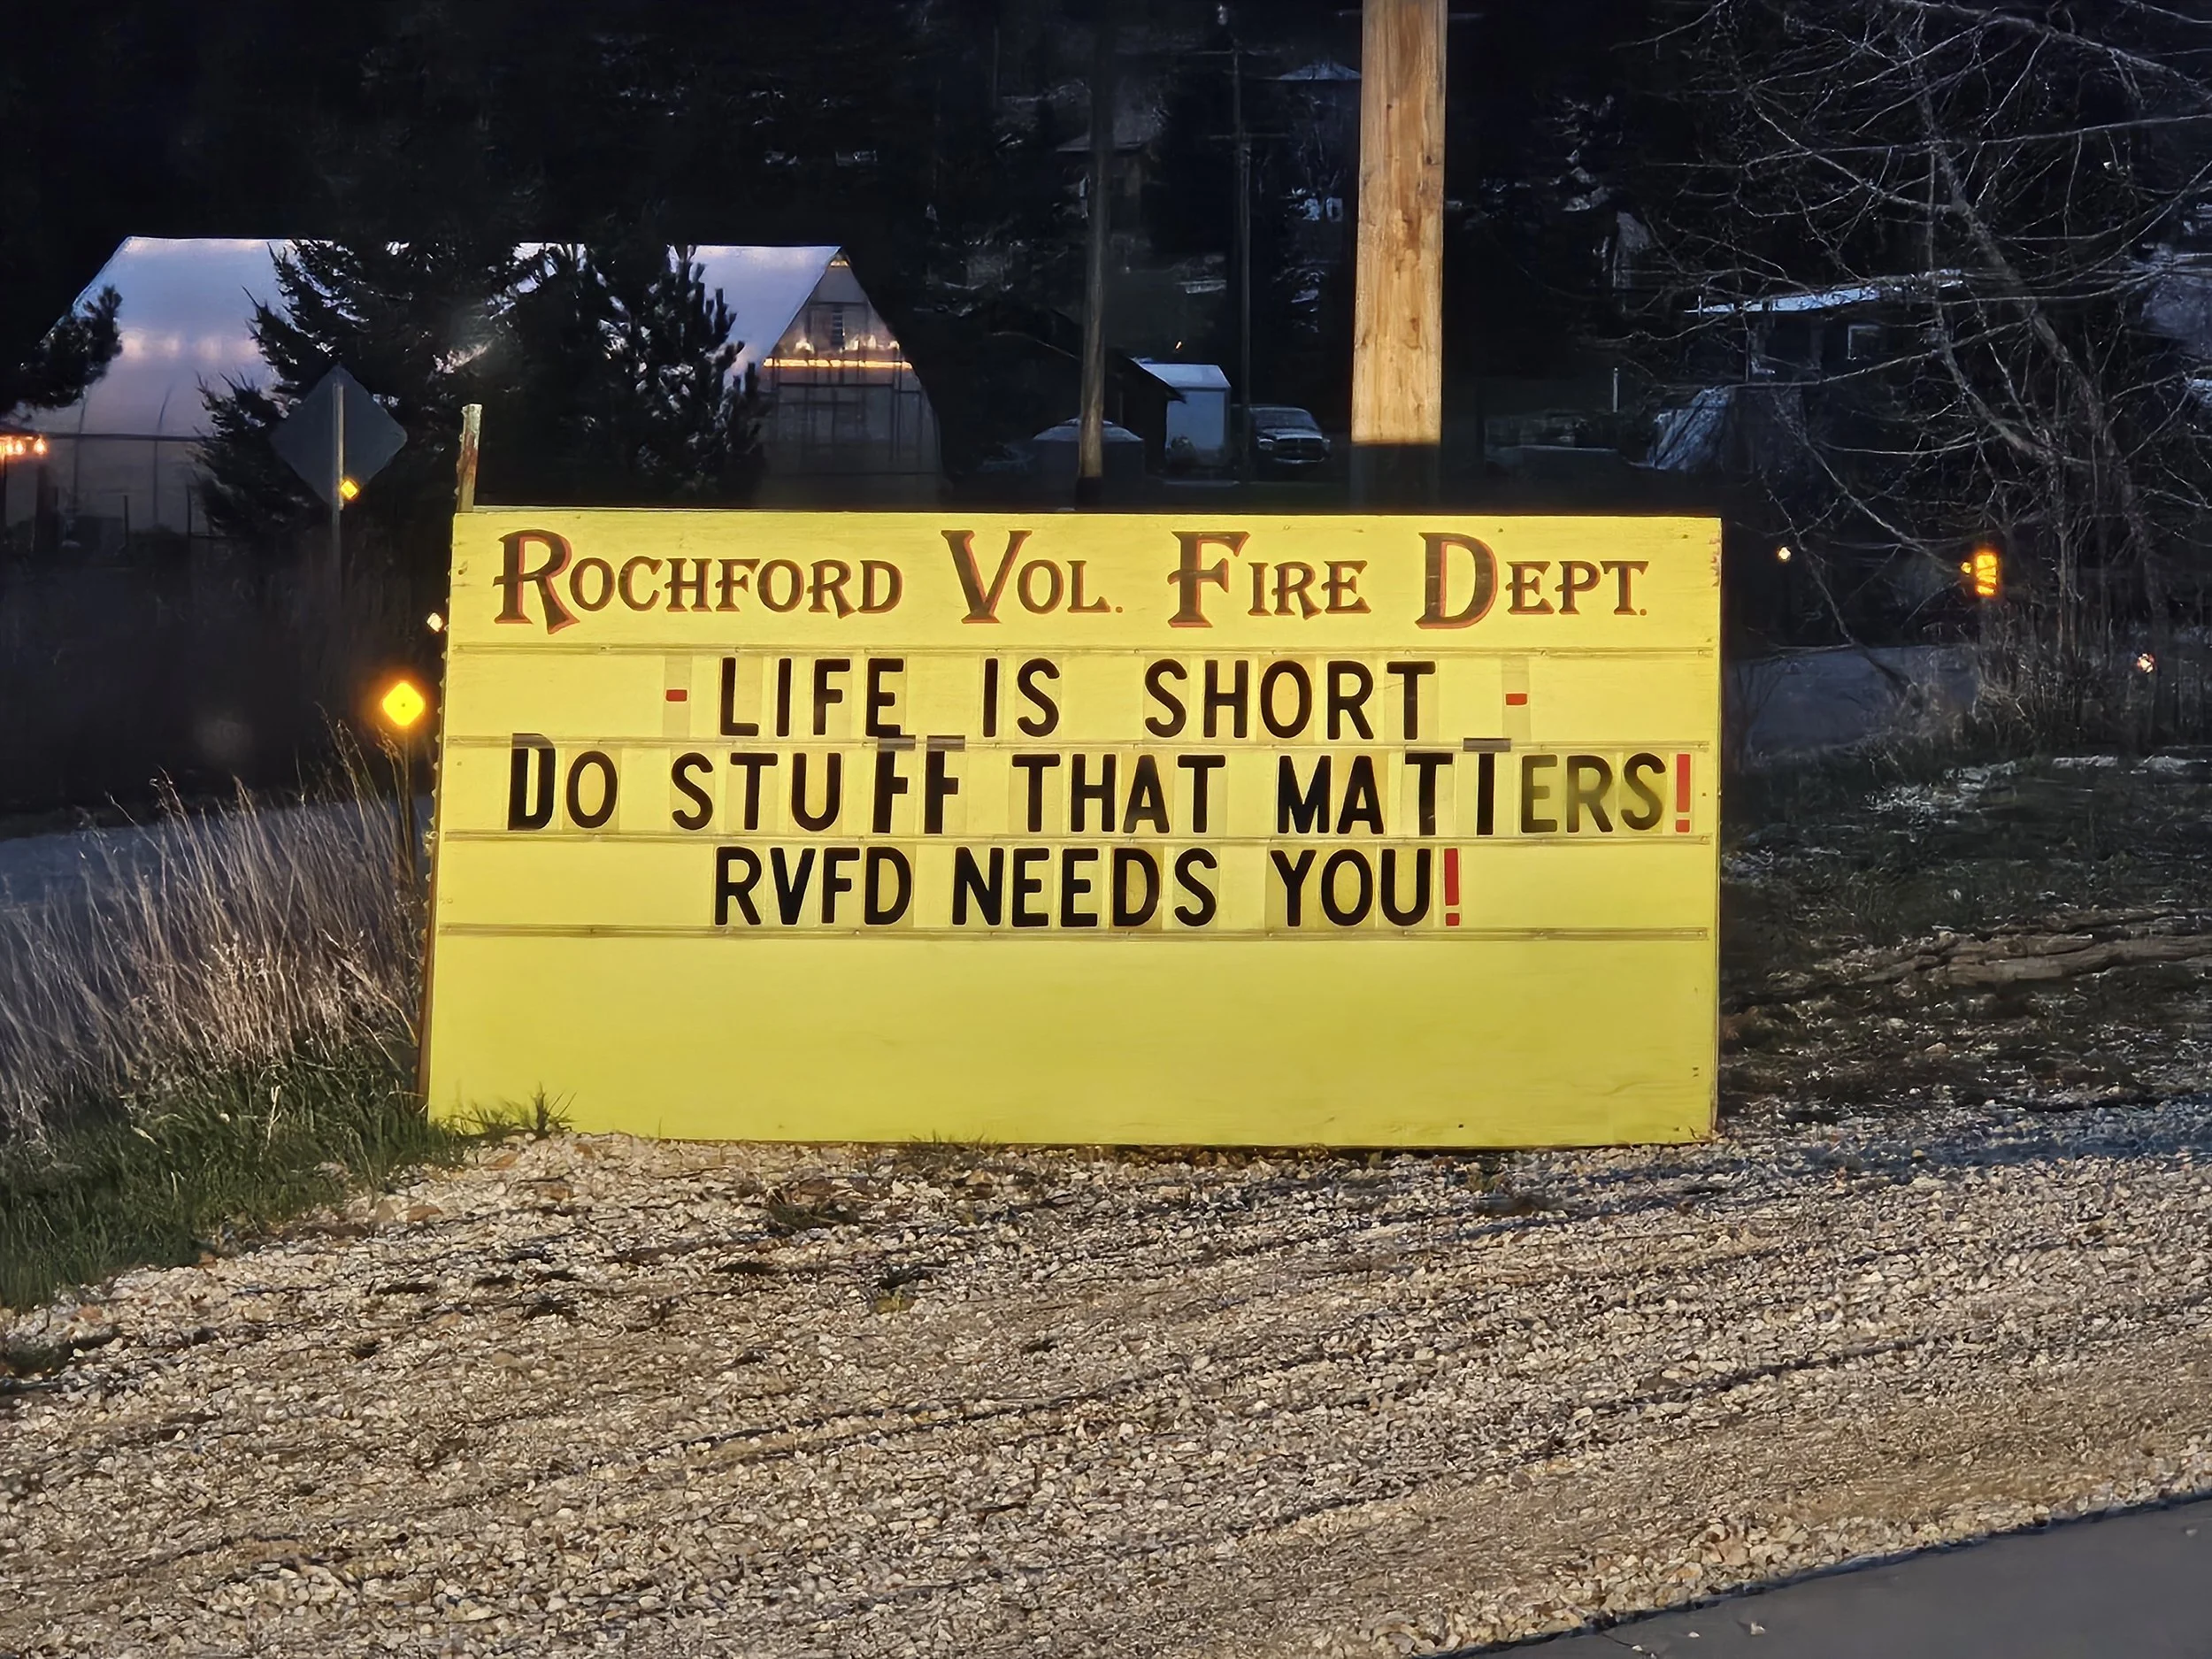 ROCHFORD VOL. FIRE DEPT.
- LIFE IS SHORT -
DO STUFF THAT MATTERS!
RVFD NEEDS YOU!